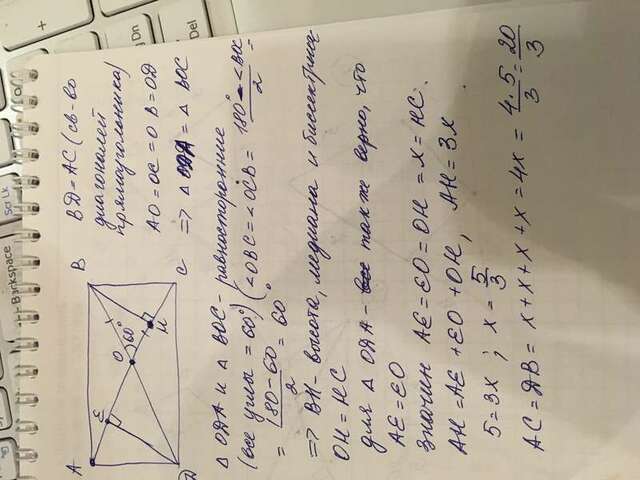 Backspace
Scr Lk
Pg Dn
Del
+
A
B
E
O
60°
H
D
C
BD = AC (св-во
диагоналей
прямоугольника)
AO = OC = OB = OD
=> △ ODA = △ BOC
△ ODA и △ BOC - равносторонние
(все углы = 60°) (∠OBC = ∠OCB = (180° - ∠BOC)/2 =
= (180 - 60)/2 = 60°
=> BH - высота, медиана и биссектриса
OH = HC
для △ ODA - также верно, что
AE = EO
Значит AE = EO = OH = x = HC.
AH = AE + EO + OH, AH = 3x
5 = 3x ; x = 5/3
AC = DB = x + x + x + x = 4x = (4 · 5)/3 = 20/3